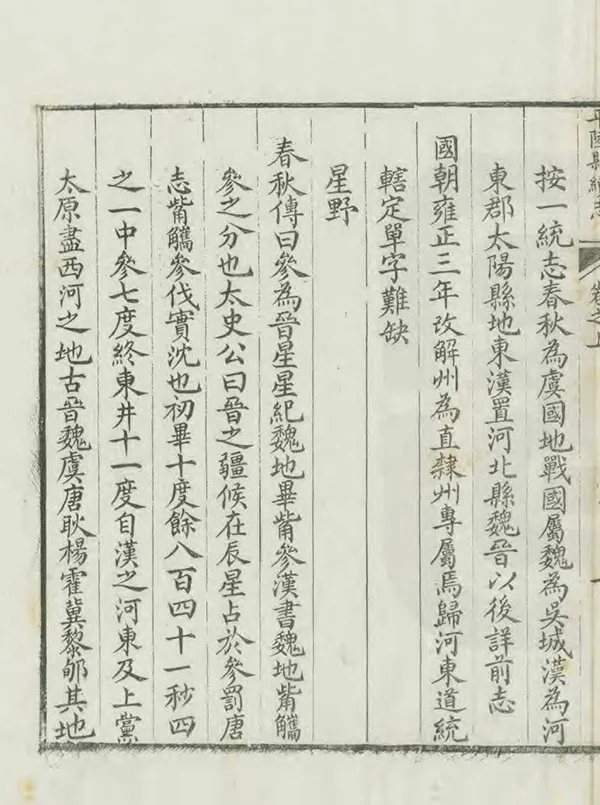 平陸縣續志
卷之上
按一統志春秋為虞國地戰國屬魏為吳城漢為河
東郡太陽縣地東漢置河北縣魏晉以後詳前志
國朝雍正三年改解州為直隸州專屬焉歸河東道統
轄定單字難缺
星野
春秋傳曰參為晉星星紀魏地畢觜參漢書魏地觜觿
參之分也太史公曰晉之疆候在辰星占於參罰唐
志觜觿參伐實沈也初畢十度餘八百四十一秒四
之一中參七度終東井十一度自漢之河東及上黨
太原盡西河之地古晉魏虞唐耿楊霍冀黎郇其地